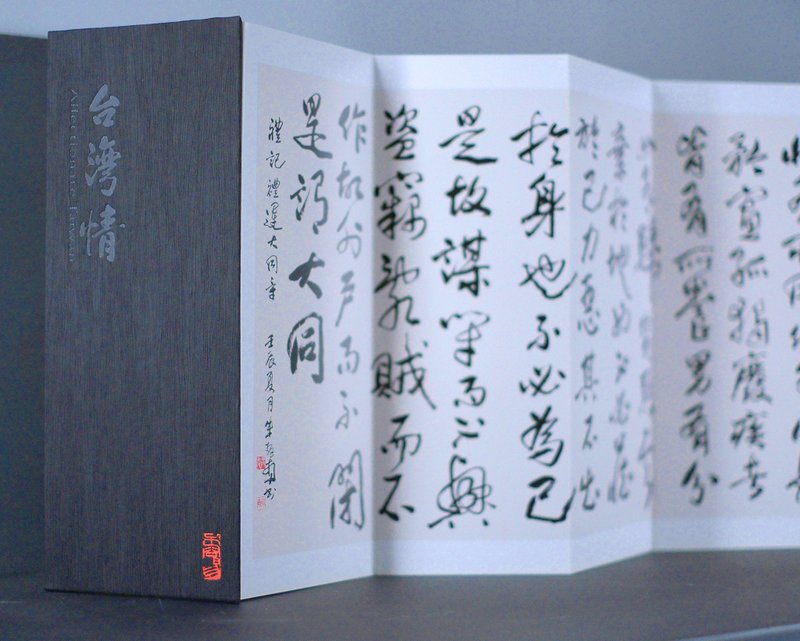 台灣情
Affectionate Taiwan
矜寡孤獨廢疾者
皆有所養男有分
棄於地也不必藏
於己力惡其不出
於身也不必為己
是故謀閉而不興
盜竊亂賊而不
作故外戶而不閉
是謂大同
禮記禮運大同章 壬辰夏月